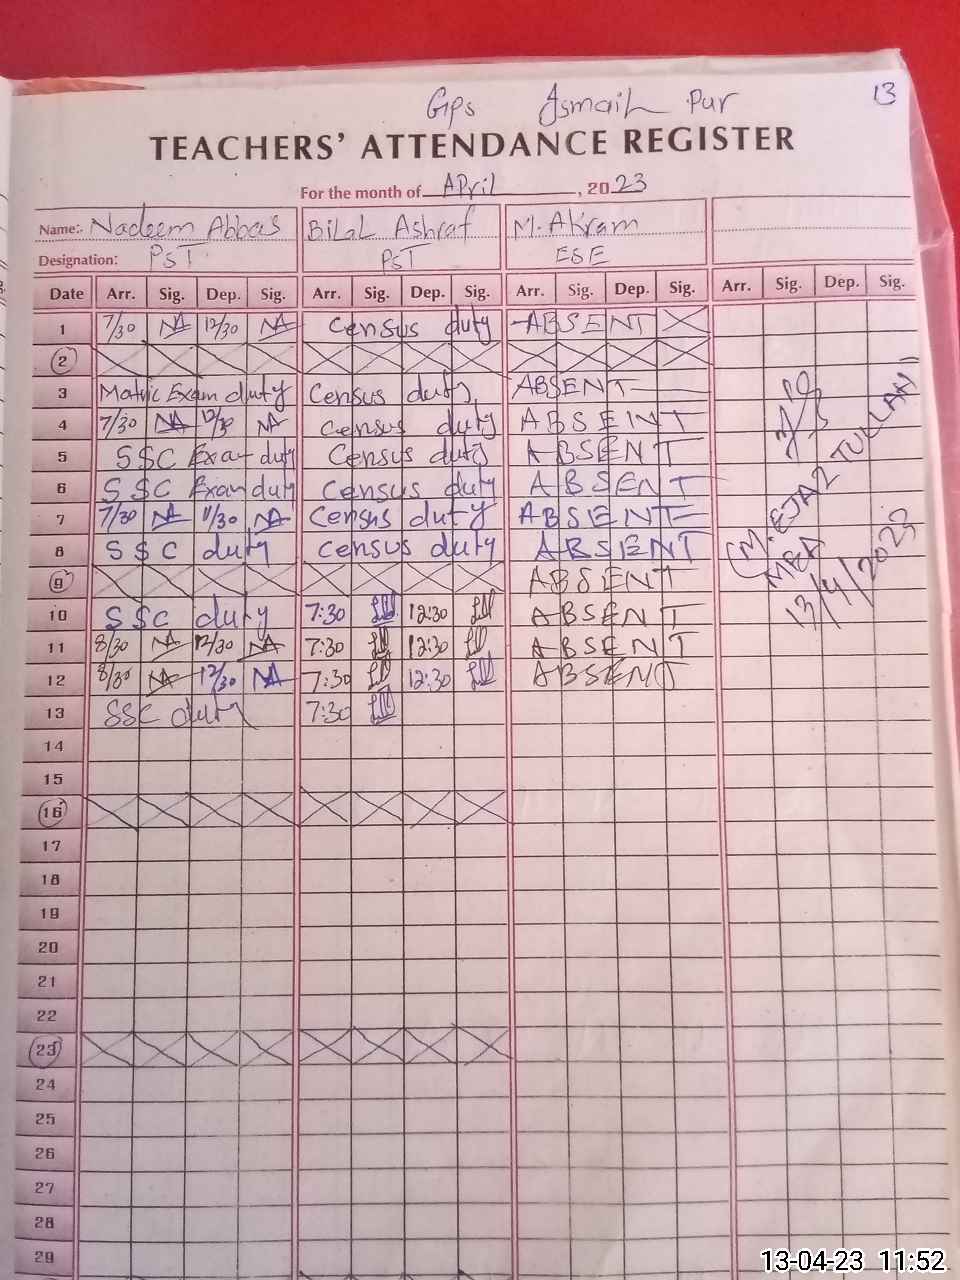 13
Gps Ismail Pur
TEACHERS' ATTENDANCE REGISTER
For the month of April, 2023
Name:. Nadeem Abbas BiLaL Ashraf M. Akram
Designation: PST PST ESE
Date Arr. Sig. Dep. Sig. Arr. Sig. Dep. Sig. Arr. Sig. Dep. Sig. Arr. Sig. Dep. Sig.
1 7/30 NA 12/30 NA Census duty ABSENT
2
3 Matric Exam duty Census duty ABSENT
4 7/30 NA 12/30 NA Census duty ABSENT
5 SSC Exam duty Census duty ABSENT
6 SSC Exam duty Census duty ABSENT
7 7/30 NA 11/30 NA Census duty ABSENT
8 SSC duty Census duty ABSENT
9 ABSENT
10 SSC duty 7:30 12:30 ABSENT
11 8/30 NA 12/30 NA 7:30 12:30 ABSENT
12 8/30 NA 12/30 NA 7:30 12:30 ABSENT
13 SSC duty 7:30
14
15
16
17
18
19
20
21
22
23
24
25
26
27
28
29
(M. EJAZ TULLAH)
MEA
13/4/2023
13-04-23 11:52